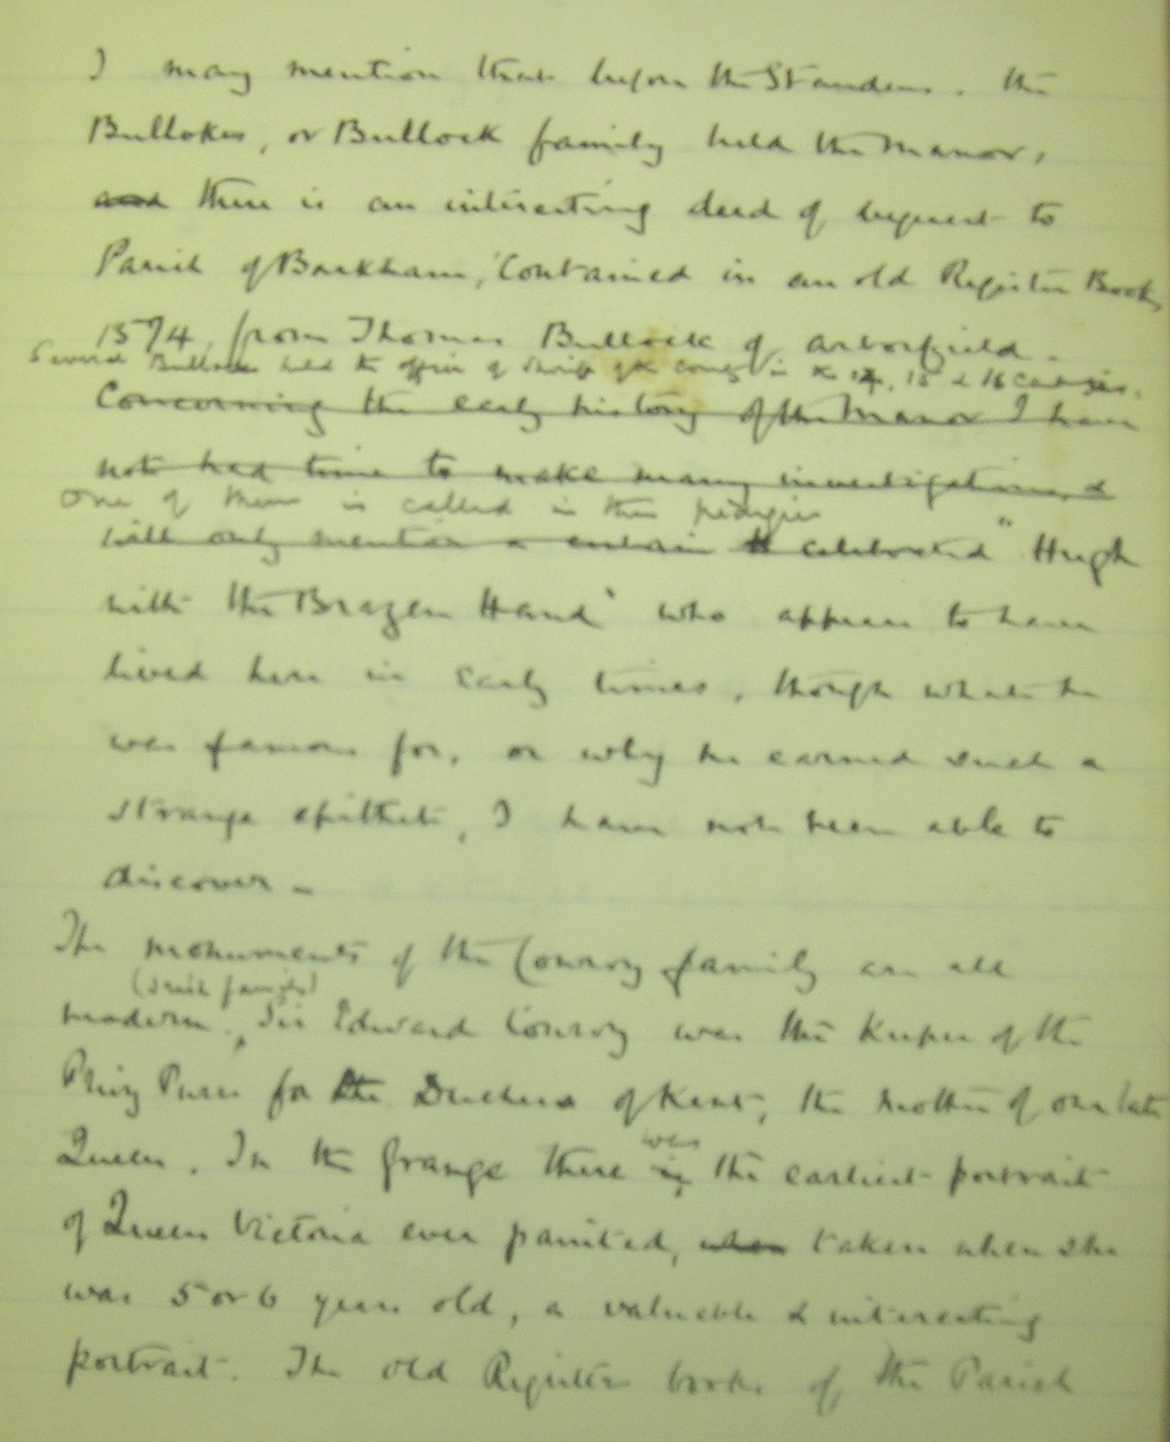 I may mention that before the Standens. the
Bullokes, or Bullock family held the Manor,
and there is an interesting deed of bequest to
Parish of Barkham, contained in an old Register Book,
1574, from Thomas Bullock of Arborfield.
Several Bullocks held the office of Sheriff of the County in the 14, 15 & 16 Centuries.
Concerning the early history of the Manor I have
not had time to make many investigations, &
One of them is called in their pedigree
will only mention a certain celebrated "Hugh
with the Brazen Hand" who appears to have
lived here in early times, though what he
was famous for, or why he earned such a
strange epithet, I have not been able to
discover.
The monuments of the Conroy family are all
(Irish family)
modern. Sir Edward Conroy was the Keeper of the
Privy Purse for the Duchess of Kent, the mother of our late
Queen. In the Grange there is the earliest portrait
was
of Queen Victoria ever painted, when taken when she
was 5 or 6 years old, a valuable & interesting
portrait. The old Register books of the Parish